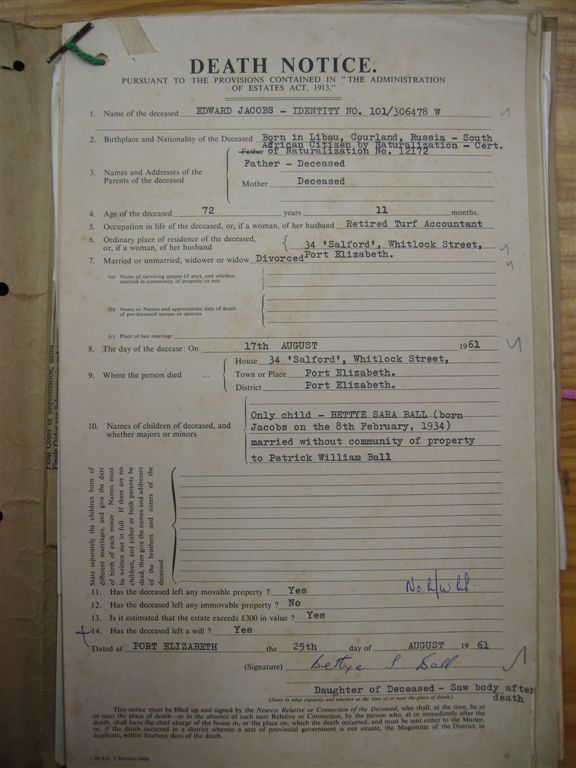 DEATH NOTICE.
PURSUANT TO THE PROVISIONS CONTAINED IN "THE ADMINISTRATION
OF ESTATES ACT, 1913."
1. Name of the deceased EDWARD JACOBS - IDENTITY NO. 101/306478 W
2. Birthplace and Nationality of the Deceased Born in Libau, Courland, Russia - South
African Citizen by Naturalization - Cert.
Father of Naturalization No. 12172
3. Names and Addresses of the Parents of the deceased
Father - Deceased
Mother Deceased
4. Age of the deceased 72 years 11 months.
5. Occupation in life of the deceased, or, if a woman, of her husband Retired Turf Accountant
6. Ordinary place of residence of the deceased, or, if a woman, of her husband
34 'Salford', Whitlock Street,
Port Elizabeth.
7. Married or unmarried, widower or widow Divorced
(a) Name of surviving spouse (if any), and whether
married in community of property or not
(b) Name or Names and approximate date of death
of pre-deceased spouse or spouses
(c) Place of last marriage
8. The day of the decease: On 17th AUGUST 1961
9. Where the person died ...
House 34 'Salford', Whitlock Street,
Town or Place Port Elizabeth.
District Port Elizabeth.
10. Names of children of deceased, and
whether majors or minors
Only child - BETTYE SARA BALL (born
Jacobs on the 8th February, 1934)
married without community of property
to Patrick William Ball
State separately the children born of
different marriages, and give the date
of birth of each minor. Names must
be written out in full. If there are no
children, and either or both parents be
dead, then give the names and addresses
of the brothers and sisters of the
deceased.
11. Has the deceased left any movable property ? Yes
12. Has the deceased left any immovable property ? No
13. Is it estimated that the estate exceeds £300 in value ? Yes
14. Has the deceased left a will ? Yes
Dated at PORT ELIZABETH the 25th day of AUGUST 1961
(Signature) Bettye S Ball
Daughter of Deceased - Saw body after
death
(State in what capacity and whether at the time at or near the place of death.)
This notice must be filled up and signed by the Nearest Relative or Connection of the Deceased, who shall, at the time, be at
or near the place of death—or in the absence of such near Relative or Connection, by the person who, at or immediately after the
death, shall have the chief charge of the house in, or the place on, which the death occurred, and must be sent either to the Master,
or, if the death occurred in a district wherein a seat of provincial government is not situate, the Magistrate of the District, in
duplicate, within fourteen days of the death.